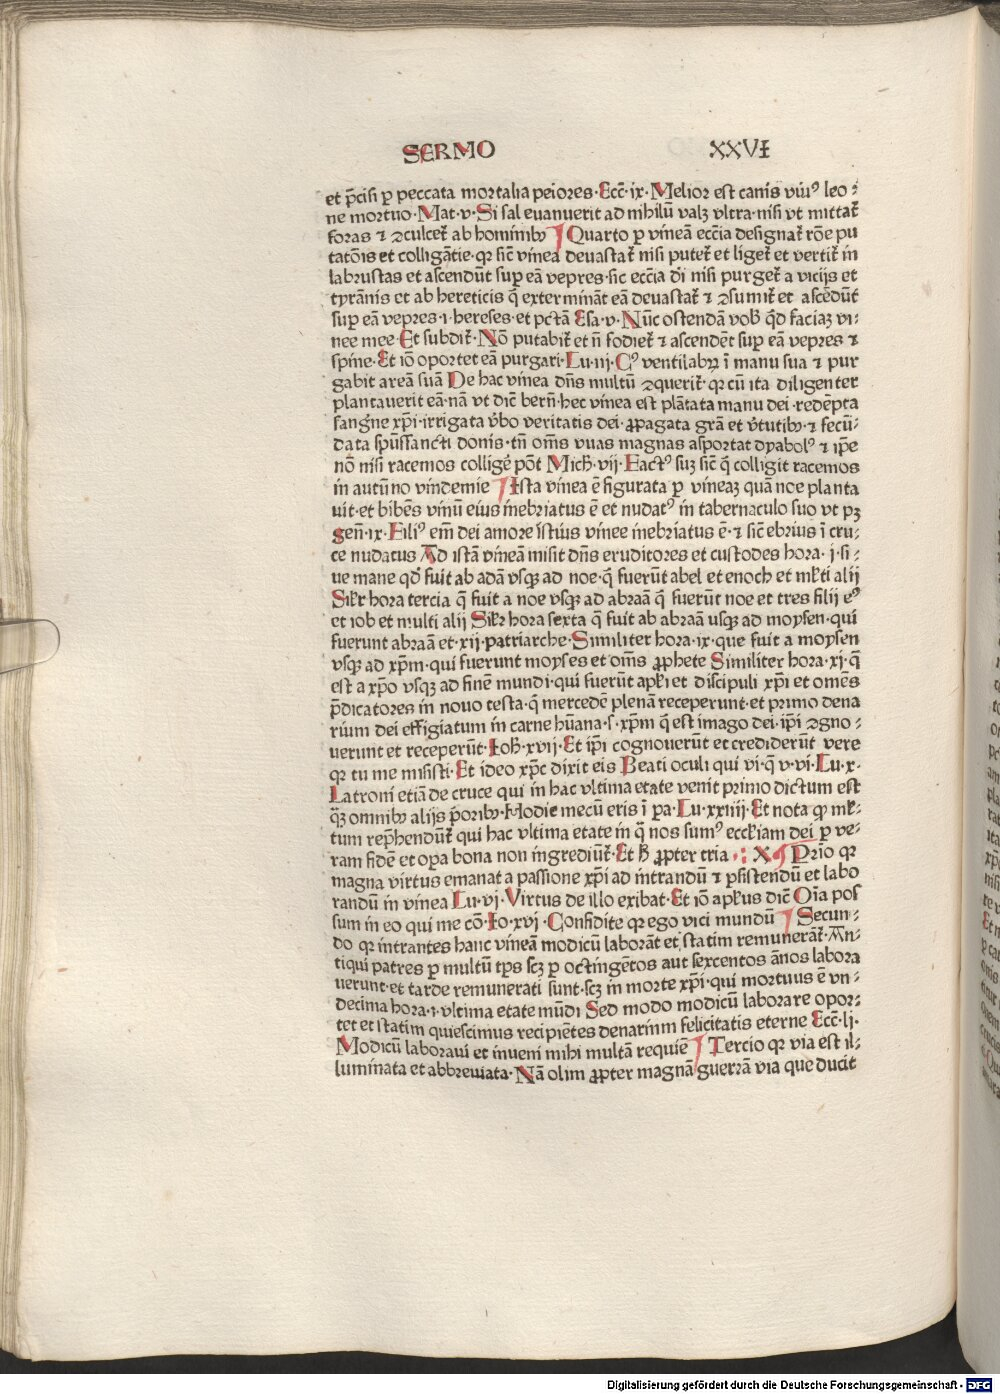 SERMO XXVI
et p̄cisi ꝑ peccata mortalia peiores· Ecc̄·ix· Melior est canis viuꝰ leo⸗
ne mortuo· Mat·v· Si sal euanuerit ad nihilū valꝫ vltra·nisi vt mittat᷑
foras ⁊ ↄculcet᷑ ab hominibꝫ ¶ Quarto ꝑ vineā ecc̄ia designat᷑ rōe pu
tatōnis et colligātie·qꝛ sic̄ vinea deuastat᷑ nisi putet᷑ et liget᷑ et vertit᷑ in
labrustas et ascendūt suꝑ eā vepres·sic ecc̄ia dī nisi purget᷑ a vicijs et
tyrānis et ab hereticis q̄ extermināt eā deuastat᷑ ⁊ ↄsumit᷑ et ascēdūt
suꝑ eā vepres·i·hereses·et pctā Esa·v· Nūc ostendā vob̄ qd̄ faciaꝫ vi⸗
nee mee· Et subdit᷑· Nō putabit᷑ et n̄ fodiet᷑ ⁊ ascendēt suꝑ eā vepres ⁊
spine· Et iō oportet eā purgari· Lu·iij· Cꝰ ventilabꝝ ī manu sua ⁊ pur
gabit areā suā De hac vinea dn̄s multū ↄquerit᷑·qꝛ cū ita diligenter
plantauerit eā·nā vt dic̄ bern̄·hec vinea est plātata manu dei·redēpta
sangn̄e xp̄i·irrigata v̄bo veritatis dei·ꝓpagata grā et v̄tutibꝫ·⁊ fecū⸗
data spūssancti donis·tn̄ om̄s vuas magnas asportat dyabolꝰ ⁊ ip̄e
nō nisi racemos collige᷑ pōt Mich̄·vij· Factꝰ suꝫ sic̄ q̄ colligit racemos
in autūno vindemie ¶ Ista vinea ē figurata ꝑ vineaꝫ quā noe planta
uit·et bibēs vinū eius inebriatus ē et nudatꝰ in tabernaculo suo vt pꝫ
gen̄·ix· Filiꝰ em̄ dei amore istius vinee inebriatus ē·⁊ sic̄ ebrius ī cru⸗
ce nudatus Ad istā vineā misit dn̄s eruditores et custodes hora·j·si⸗
ue mane qd̓ fuit ab adā vsqꝫ ad noe·q̄ fuerūt abel et enoch et ml̓ti alij
Sil̓r hora tercia q̄ fuit a noe vsqꝫ ad abraā q̄ fuerūt noe et tres filij eꝰ
et iob et multi alij Sil̓r hora sexta q̄ fuit ab abraā vsqꝫ ad moysen·qui
fuerunt abraā et·xij·patriarche· Similiter hora·ix·que fuit a moysen
vsqꝫ ad xp̄m·qui fuerunt moyses et om̄s ꝓphete Similiter hora·xj·q̄
est a xp̄o vsqꝫ ad finē mundi·qui fuerūt apl̓i et discipuli xp̄i et omēs
p̄dicatores in nouo testa·q̄ mercedē plenā receperunt·et primo dena
rium dei effigiatum in carne hūana·s·xp̄m q̄ est imago dei·ip̄i ↄgno⸗
uerunt et receperūt· Ioh̄·xvij· Et ip̄i cognouerūt et crediderūt vere
qꝛ tu me misisti· Et ideo xp̄c dixit eis Beati oculi qui vi·q̄ v·vi· Lu·x·
Latroni etiā de cruce qui in hac vltima etate venit primo dictum est
q̄ꝫ omnibꝫ alijs p̄oribꝫ· Hodie mecū eris ī pa· Lu·xxiiij· Et nota qꝙ ml̓⸗
tum rep̄hendūt᷑ qui hac vltima etate in q̄ nos sumꝰ eccl̓iam dei ꝑ ve⸗
ram fidē et oꝑa bona non ingrediūt᷑· Et h̄ ꝓpter tria ·: X ¶ Prīo qꝛ
magna virtus emanat a passione xp̄i ad intrandū ⁊ ꝑsistendū et labo
randū in vinea Lu·vj· Virtus de illo exibat· Et iō apl̓us dic̄ Oīa pos
sum in eo qui me cō· Io·xvj· Confidite qꝛ ego vici mundū ¶ Secun⸗
do qꝛ intrantes hanc vineā modicū laborāt et statim remunerāt᷑· An⸗
tiqui patres ꝑ multū tp̄s scꝫ ꝑ octingētos aut sexcentos ānos labora
uerunt·et tarde remunerati sunt·scꝫ in morte xp̄i·qui mortuus ē vn⸗
decima hora·i·vltima etate mūdi Sed modo modicū laborare opor⸗
tet et statim quiescimus recipiētes denarium felicitatis eterne Ecc̄·lj·
Modicū laboraui et inueni mihi multā requiē ¶ Tercio qꝛ via est il⸗
luminata et abbreuiata· Nā olim ꝓpter magnā guerrā via que ducit
Digitalisierung gefördert durch die Deutsche Forschungsgemeinschaft - DFG